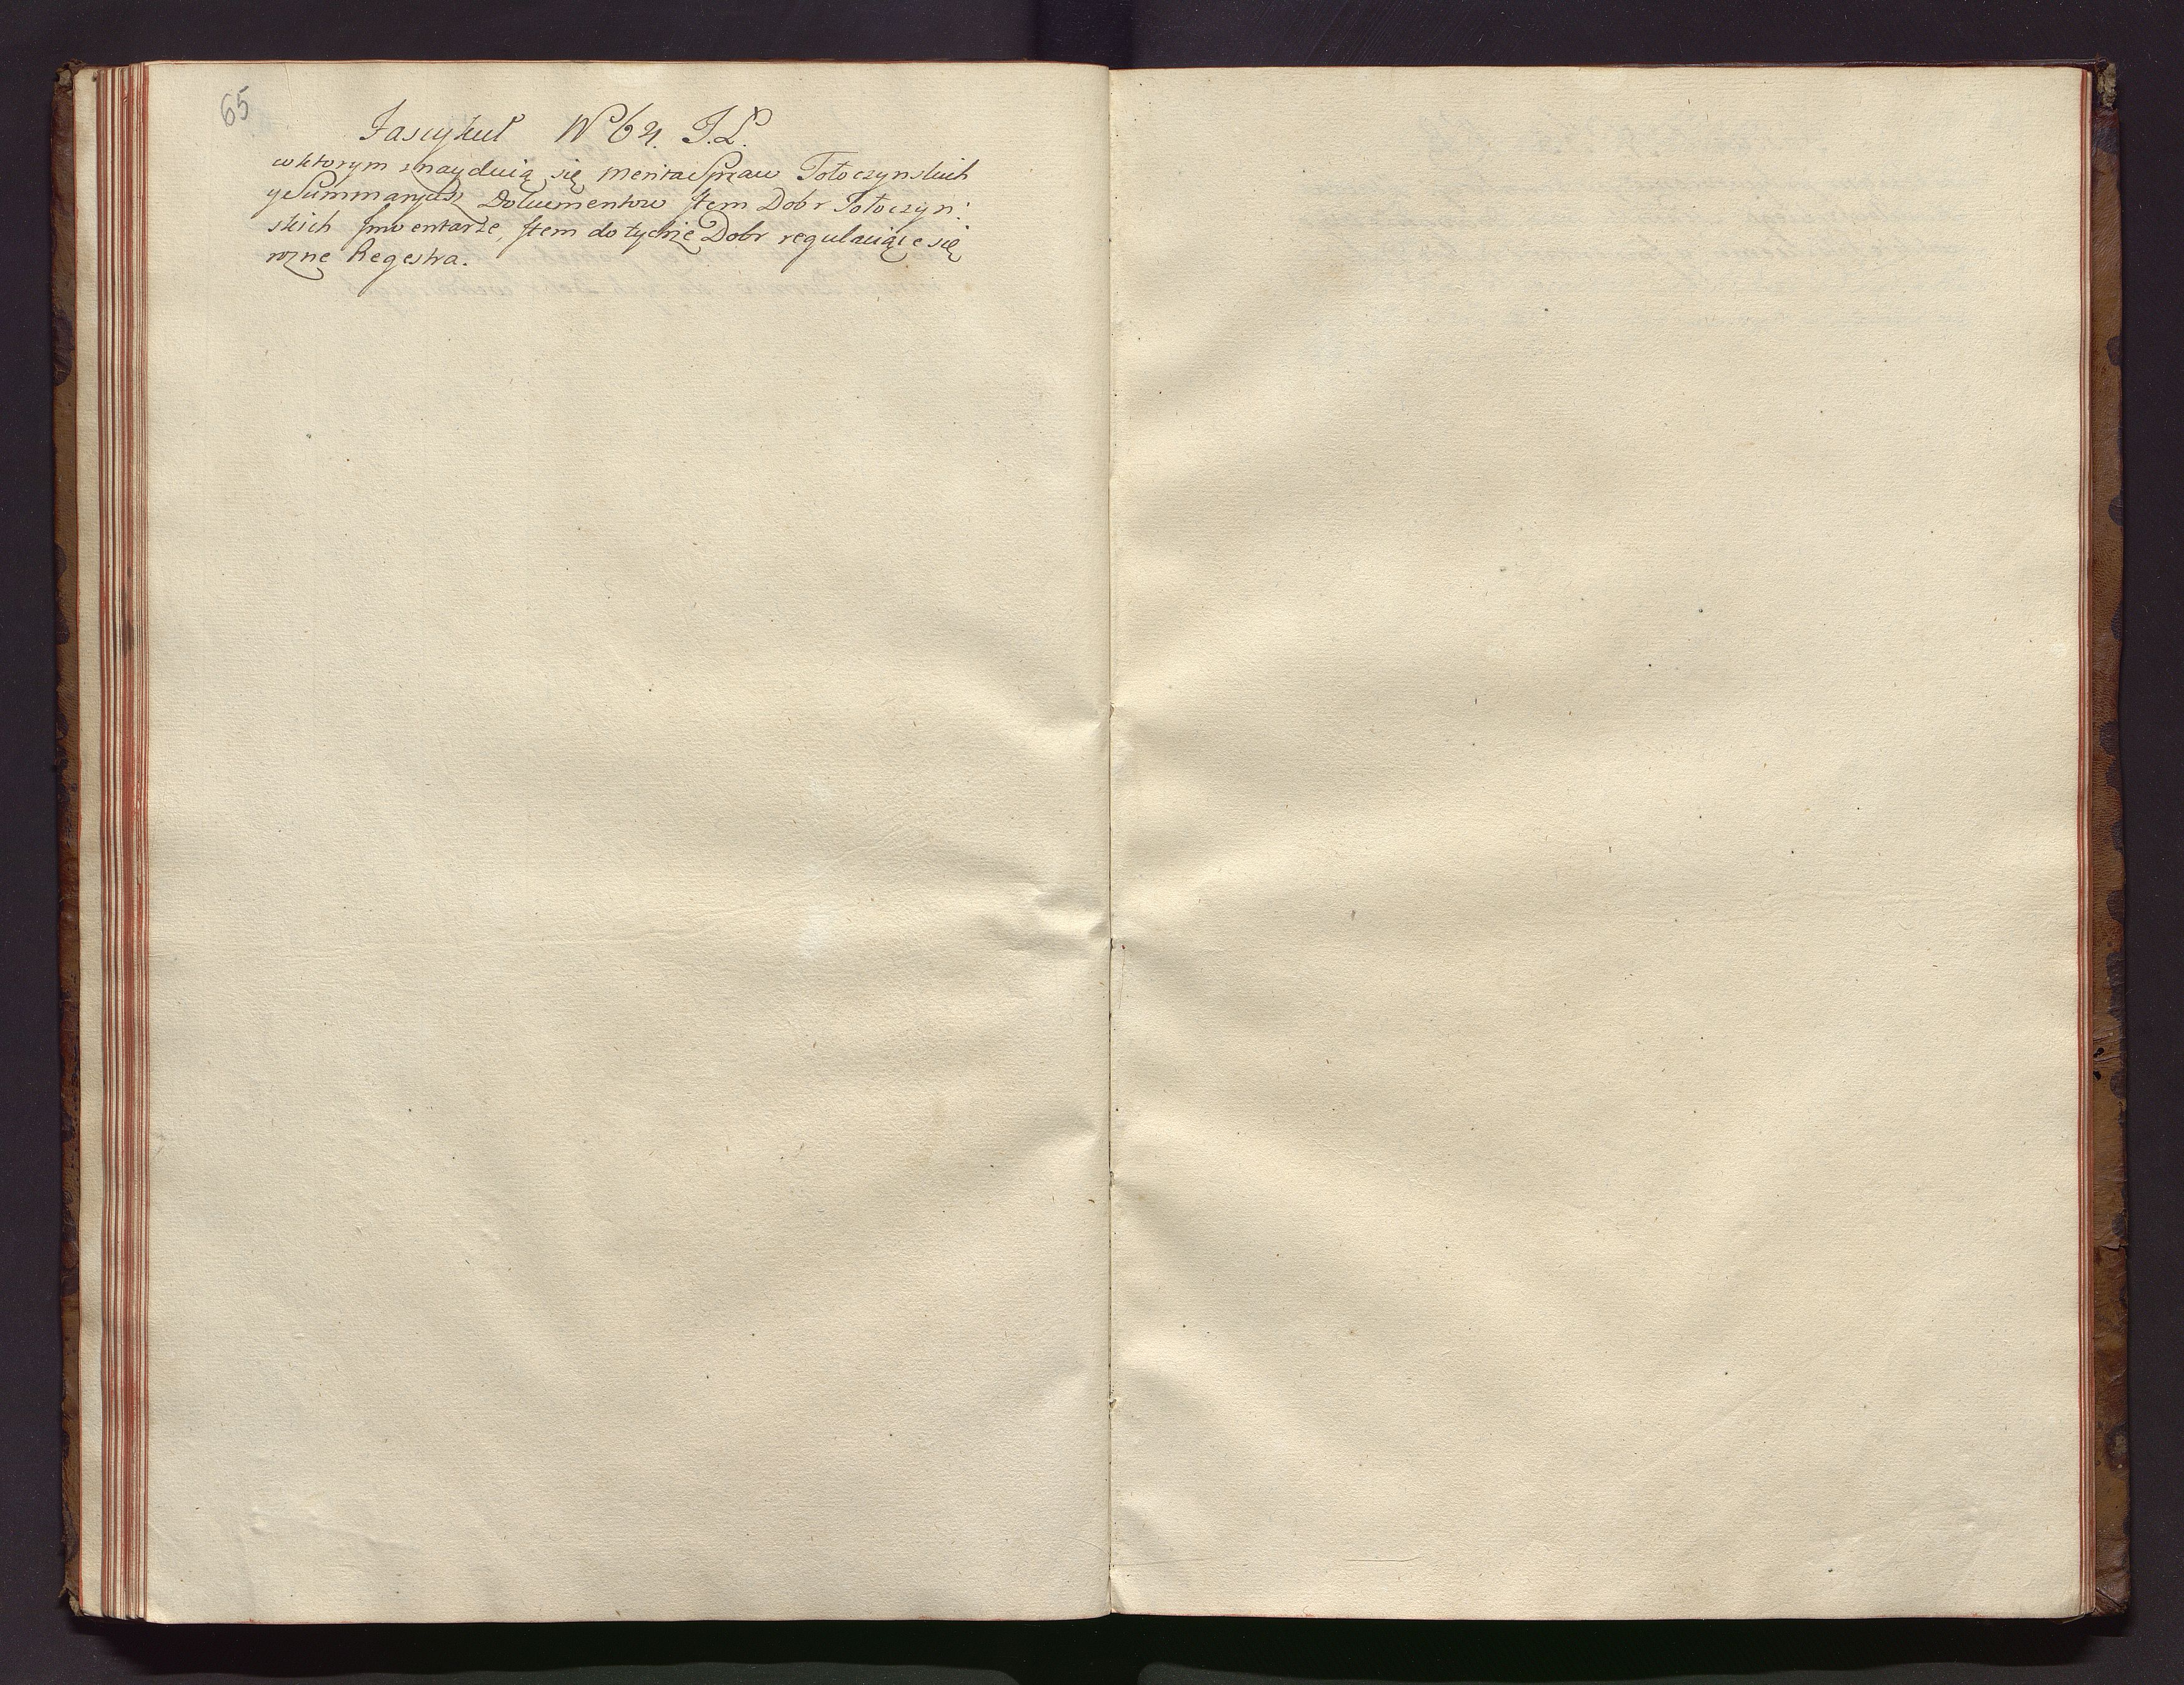 65
Fascykuł No 64. T. L.
w ktorym znayduią się merita Spraw Tołoczynskich
y Summaryusz Dokumentow Item Dobr Tołoczyn:
skich Inwentarze, Item do tychże Dobr reguluiące się
rożne Regestra.